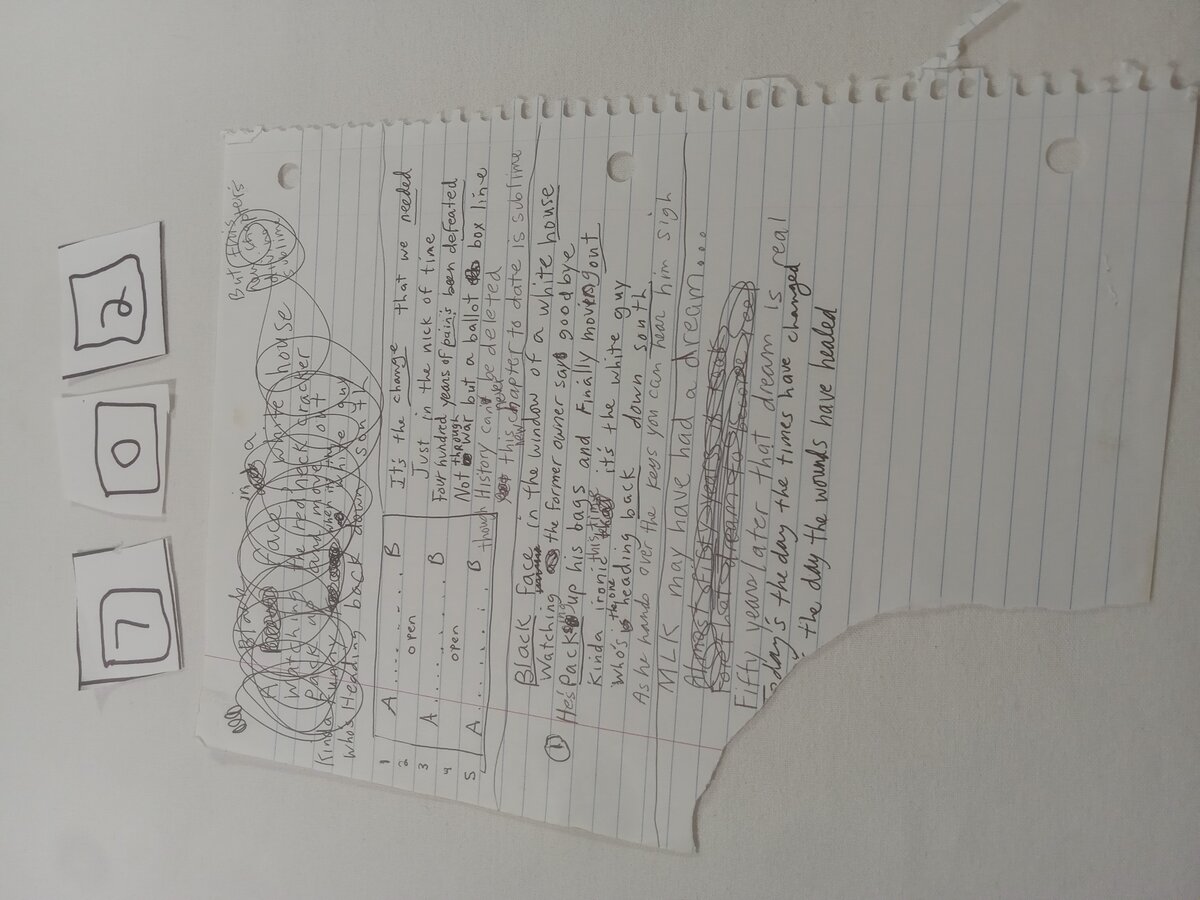 7 0 2
But this
sublime
Black face in a
Watching the Redneck cracker
white house
pack up and move out
Kinda funny when white guy
Who's Heading back down south
1 A ........ B It's the change that we needed
2 open Just in the nick of time
3 A ....... B Four hundred years of pain's been defeated
4 open Not through war but a ballot box line
5 A ..... B though History can never be deleted
this new chapter to date is sublime
Black face in the window of a white house
Watching the former owner say goodbye
1 He's Packing up his bags and Finally moving out
Kinda ironic this time it's the white guy
Who's the one heading back down south
As he hands over the keys you can hear him sigh
MLK may have had a dream...
Almost fifty years it took
For that dream to become real
Fifty years later that dream is real
Today's the day the times have changed
the day the wounds have healed